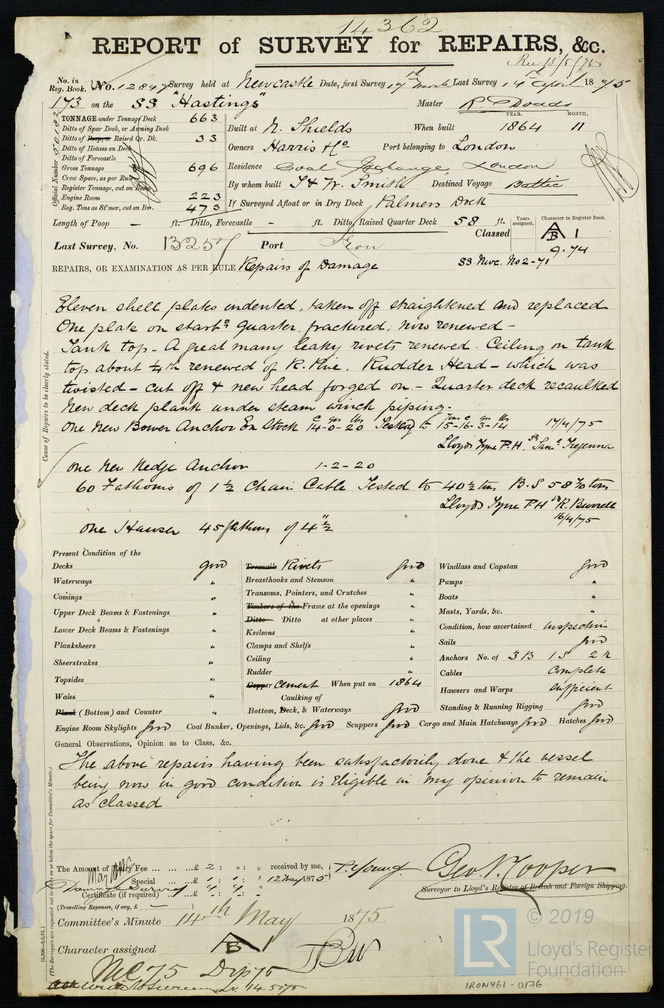 14362
REPORT of SURVEY for REPAIRS, &c.
No. in Reg. Book. No. 12847 Survey held at Newcastle Date, first Survey 17th March Last Survey 14 April 1875
173 on the SS "Hastings" Master
TONNAGE under Tonnage Deck 663
Ditto of Spar Deck, or Awning Deck
Ditto of Poop, or Raised Qr. Dk. 33
Ditto of Houses on Deck
Ditto of Forecastle
Gross Tonnage 696
Crew Space, as per Rule
Register Tonnage, cut on Beam
Engine Room 223
Reg. Tons as St'mer, cut on Bm. 473
Official Number
YEAR. MONTH.
Built at N. Shields When built 1864 11
Owners Harris & Co Port belonging to London
Residence Coal Exchange, London
By whom built T & W. Smith Destined Voyage Baltic
If Surveyed Afloat or in Dry Dock Palmers Dock
Length of Poop - ft. Ditto, Forecastle - ft. Ditto, Raised Quarter Deck 58 ft.
Classed Years assigned. Character in Register Book.
A B 1
9.74
Last Survey, No. 13257 Port Iron
SS. Nwc. No2-71
REPAIRS, OR EXAMINATION AS PER RULE Repairs of Damage
Cause of Repairs to be clearly stated.
Eleven shell plates indented, taken off straightened and replaced
One plate on starbd quarter fractured, now renewed -
Tank top - A great many leaky rivets renewed. Ceiling on tank
top about 1/4th renewed of R. Pine. Rudder Head - which was
twisted - cut off & new head forged on - Quarter deck recaulked
New deck plank under steam winch piping.
One New Bower Anchor Ex Stock 14-0-20 Tested to 15-16-3-14 17/4/75
Lloyds Tyne P.H
One New Kedge Anchor 1-2-20
60 Fathoms of 1 1/2 Chain Cable Tested to 40 1/2 tons B.S 58 7/10 ton
Lloyds Tyne P.H R. Burrell
16/4/75
One Hawser 45 fathoms of 4"1/2
Present Condition of the
Decks good
Waterways "
Comings "
Upper Deck Beams & Fastenings "
Lower Deck Beams & Fastenings "
Planksheers "
Sheerstrakes "
Topsides "
Wales "
Plank (Bottom) and Counter "
Treenails Rivets good
Breasthooks and Stemson "
Transoms, Pointers, and Crutches "
Timbers of the Frame at the openings "
Ditto Ditto at other places "
Keelsons "
Clamps and Shelfs "
Ceiling "
Rudder "
Copper Cement When put on 1864
Caulking of
Bottom, Deck, & Waterways Good
Windlass and Capstan good
Pumps "
Boats "
Masts, Yards, &c. "
Condition, how ascertained inspection
Sails good
Anchors No. of 3B 1S 2K
Cables Complete
Hawsers and Warps sufficient
Standing & Running Rigging Good
Engine Room Skylights good Coal Bunker, Openings, Lids, &c. good Scuppers good Cargo and Main Hatchways good Hatches good
General Observations, Opinion as to Class, &c.
The above repairs having been satisfactorily done & the vessel
being now in good condition is Eligible in my opinion to remain
as classed
The Amount of Entry Fee ... £ 2 : " : " received by me,
Special ... £ " : " : " 12 May 1875
Damage Survey
Certificate (if required) £ 4 4
(Travelling Expenses, if any, £ )
P. Young.
Geo. N. Cooper
Surveyor to Lloyd's Register of British and Foreign Shipping.
Committee's Minute 14th May 1875
Character assigned A B 1
MC 75
IRON461-0176
LR
© 2019
Lloyd's Register
Foundation